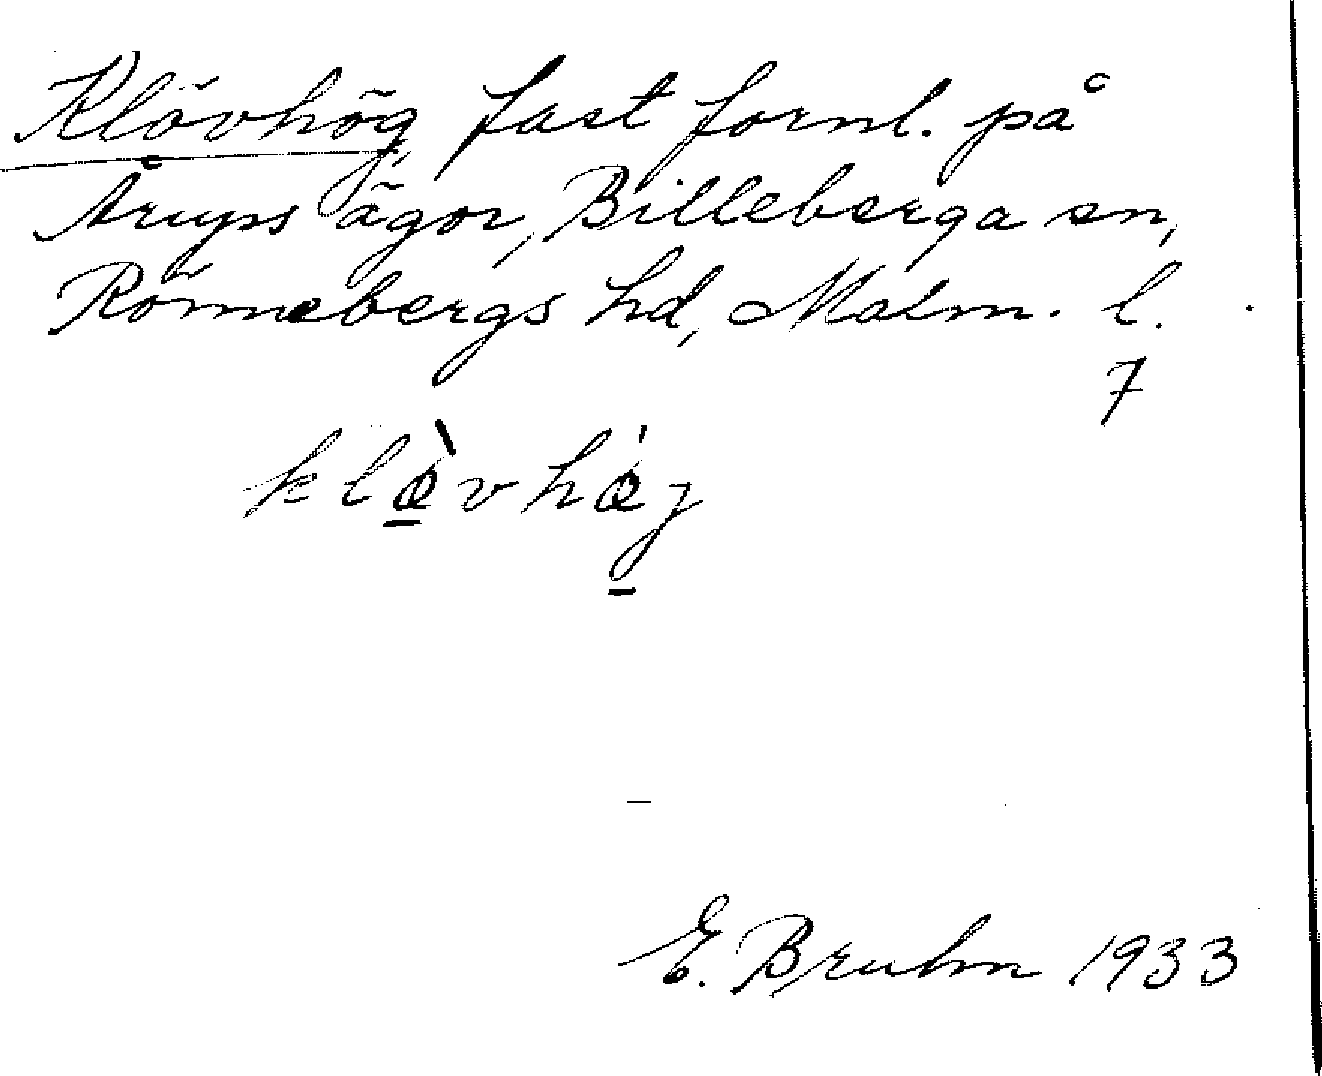 Klövhög fast fornl. på
Åryps ägor, Billeberga sn,
Rönnebergs hd, Malm. l.
7
klø̠̀vhǿj
E. Bruhn 1933